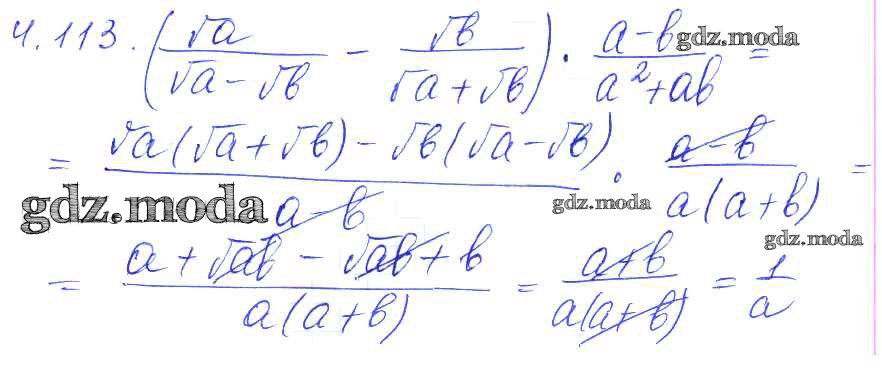 4.113. (√a/(√a - √b) - √b/(√a + √b)) · (a - b)/(a² + ab) = gdz.moda
= (√a(√a + √b) - √b(√a - √b))/(a - b) · (a - b)/(a(a + b)) =
gdz.moda gdz.moda
gdz.moda
= (a + √ab - √ab + b)/(a(a + b)) = (a + b)/(a(a + b)) = 1/a